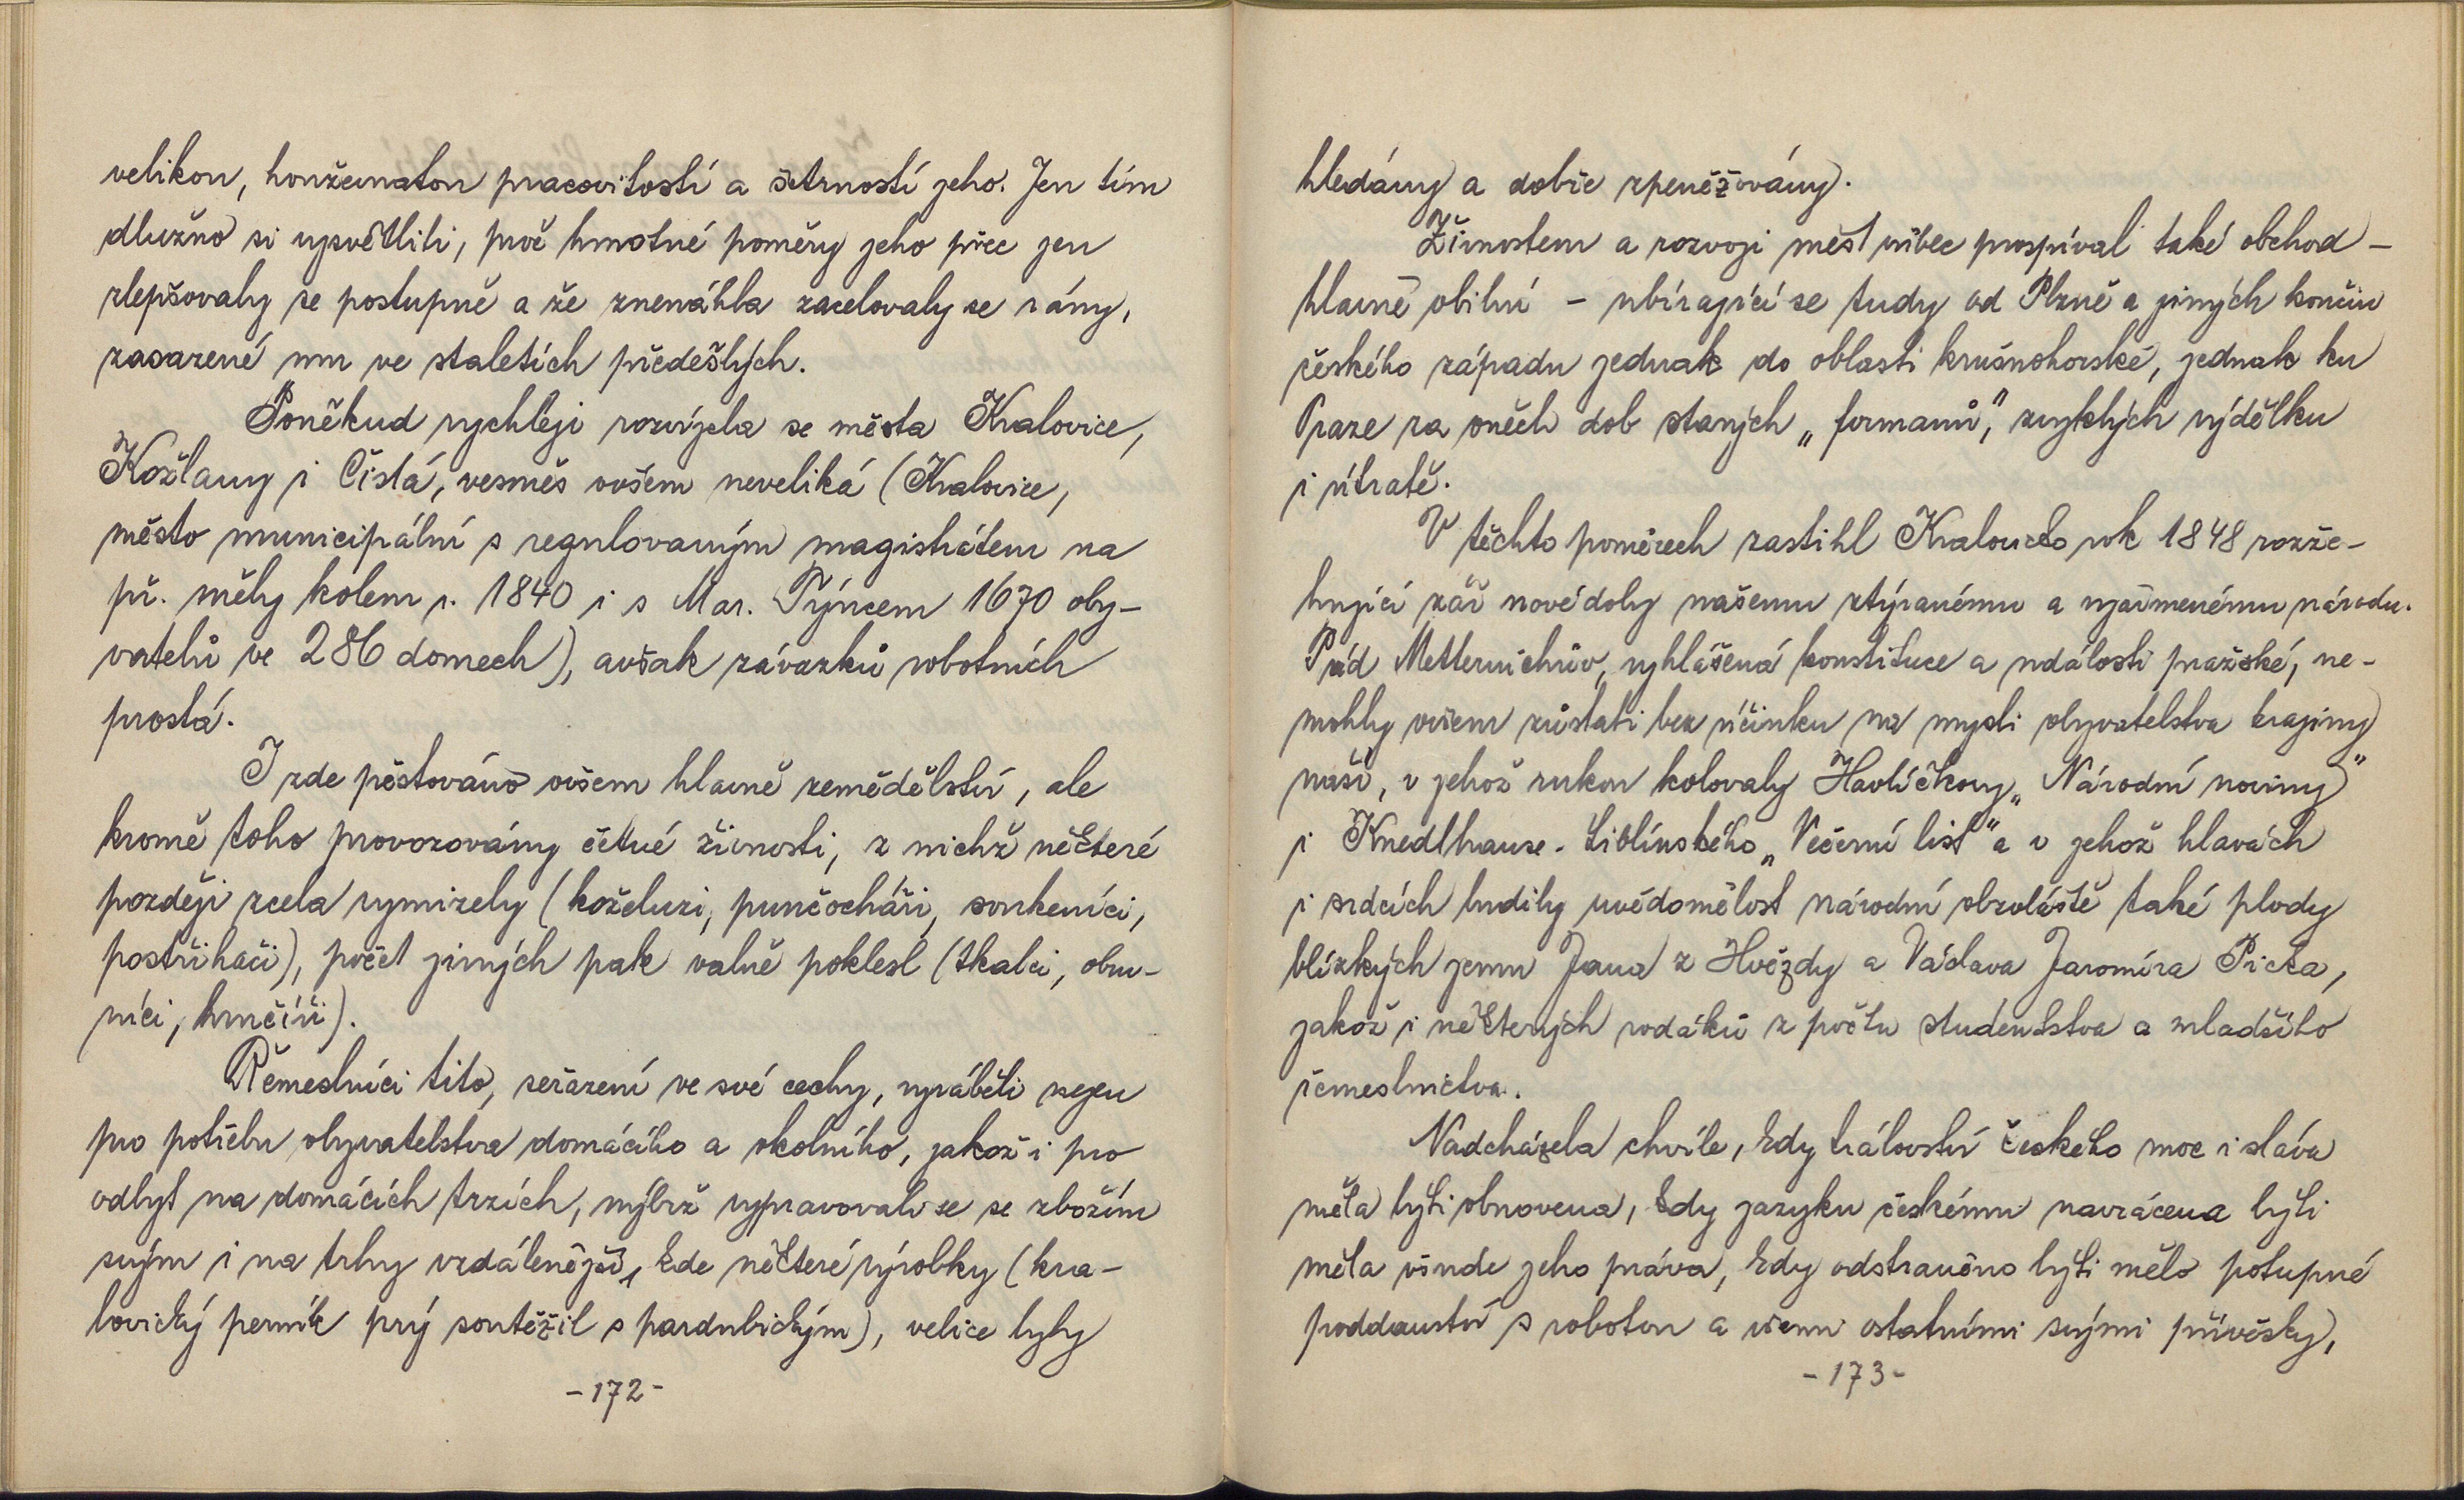 velikou, houževnatou pracovitostí a šetrností jeho. Jen tím
dlužno si vysvětliti, proč hmotné poměry jeho přec jen
zlepšovaly se postupně a že znenáhla zacelovaly se rány,
zasazené mu ve staletích předešlých.
Poněkud rychleji rozvíjela se města Kralovice,
Kožlany i Čistá, vesměs ovšem neveliká (Kralovice,
město municipální s regulovaným magistrátem na
př. měly kolem r. 1840 i s Mar. Týncem 1670 oby-
vatelů ve 286 domech), avšak závazků robotních
prostá.
I zde pěstováno ovšem hlavně zemědělství, ale
kromě toho provozovány četné živnosti, z nichž některé
později zcela vymizely (koželuzi, punčocháři, soukeníci,
postřihači), počet jiných pak valně poklesl (tkalci, obuv-
níci, hrnčíři).
Řemeslníci tito, seřazení ve své cechy, vyráběli nejen
pro potřebu obyvatelstva domácího a okolního, jakož i pro
odbyt na domácích trzích, nýbrž vypravovali se se zbožím
svým i na trhy vzdálenější, kde některé výrobky (kra-
lovický perník prý soutěžil s pardubickým), velice byly
-172-
hledány a dobře zpeněžovány.
Živnostem a rozvoji měst vůbec prospíval také obchod -
hlavně obilní - ubírající se tudy od Plzně a jiných končin
českého západu jednak do oblasti krušnohorské, jednak ku
Praze za oněch dob starých „formanů", zvyklých výdělku
i útratě.
V těchto poměrech zastihl Kralovicko rok 1848 rozže-
hující zář nové doby našemu ztýranému a ujařmenému národu.
Pád Metternichův, vyhlášená konstituce a události pražské, ne-
mohly ovšem zůstati bez účinku na mysli obyvatelstva krajiny
naší, v jehož rukou kolovaly Havlíčkovy „Národní noviny"
i Knedlhause-Liblínského „Večerní list" a v jehož hlavách
i srdcích budily uvědomělost národní obzvláště také plody
blízkých jemu Jana z Hvězdy a Václava Jaromíra Picka,
jakož i některých rodáků z počtu studentstva a mladšího
řemeslnictva.
Nadcházela chvíle, kdy království českého moc i sláva
měla býti obnovena, kdy jazyku českému navrácena býti
měla všude jeho práva, kdy odstraněno býti mělo potupné
poddanství s robotou a všemi ostatními svými přívěsky,
-173-